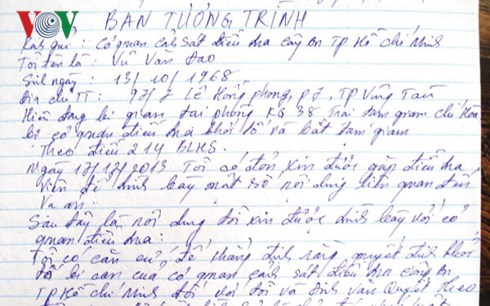 VOV
BẢN TƯỜNG TRÌNH
Kính gửi: Cơ quan cảnh sát điều tra công An TP Hồ Chí Minh
Tôi tên là: Vũ Văn Đảo
Sinh ngày: 13/10/1968
Địa chỉ TT: 97/7 Lê Hồng phong, p7, TP Vũng Tàu
Hiện đang bị giam tại phòng KG 38 Trại tạm giam chí Hòa
bị cơ quan điều tra khởi tố và bắt tạm giam
Theo điều 214 BLHS.
Ngày 17/12/2013 Tôi có đơn xin được gặp điều tra
viên để trình bày một số nội dung liên quan đến
vụ án:
Sau đây là nội dung tôi xin được trình bày với cơ
quan điều tra:
Tôi có căn cứ để khẳng định rằng quyết định khởi
tố bị can của cơ quan cảnh sát điều tra công an
TP Hồ Chí Minh đối với tôi và Đinh Văn Quyết theo